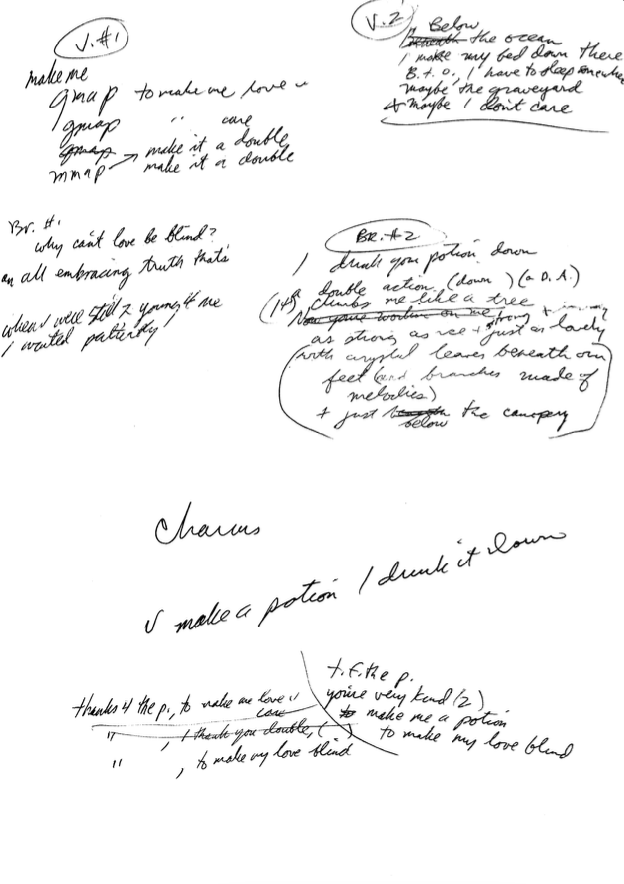 V.#1
make me
gmap to make me love u
gmap " care
gmap make it a double
mmap → make it a double
V.2
Below
Beneath the ocean
I make my bed down there
B.t.o., I have to sleep somewhere
maybe the graveyard
+ maybe I don't care
Br. #1
why can't love be blind?
an all embracing truth that's
when I were still 2 young 4 me
I waited patiently
BR.#2
I drink your potion down
a double action (down) (a D.A.)
(it) climbs me like a tree
Now you're workin on me strong +
as strong as + just as lovely
with crystal leaves beneath our
feet (and branches made of
melodies)
+ just the canopy
below
Chorus
U make a potion I drink it down
thanks 4 the p., to make me love u
care
" , I thank you double, ( )
" , to make my love blind
t.f. the p.
you're very kind (2)
to make me a potion
to make my love blind